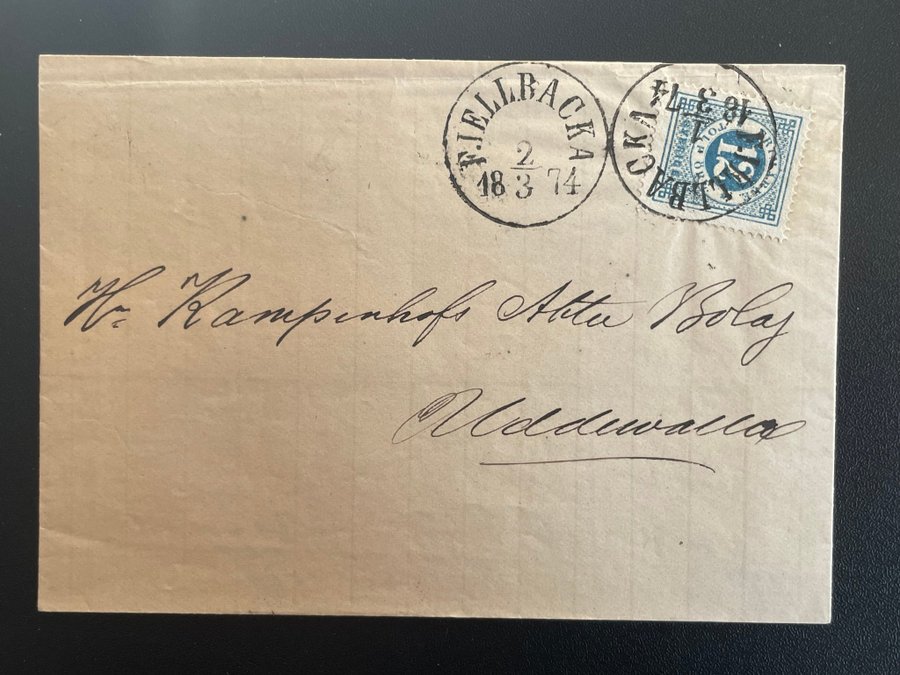 FJELLBACKA
2
18 3 74
FJELLBACKA
1
18 3 74
12
TOLF
Hr Kampenhofs Aktie Bolag
Uddewalla